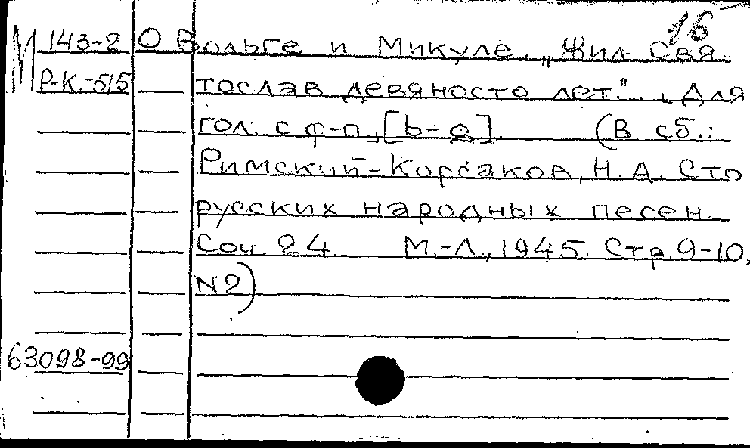 16
М 143-2 О Вольге и Микуле. „Жил Свя
Р-К.-515 тослав девяносто лет." . Для
гол. с ф-п., [b-g]. (В сб.:
Римский-Корсаков, Н.А. Сто
русских народных песен.
Соч. 24 М.-Л., 1945. Стр. 9-10,
N2)
63098-99